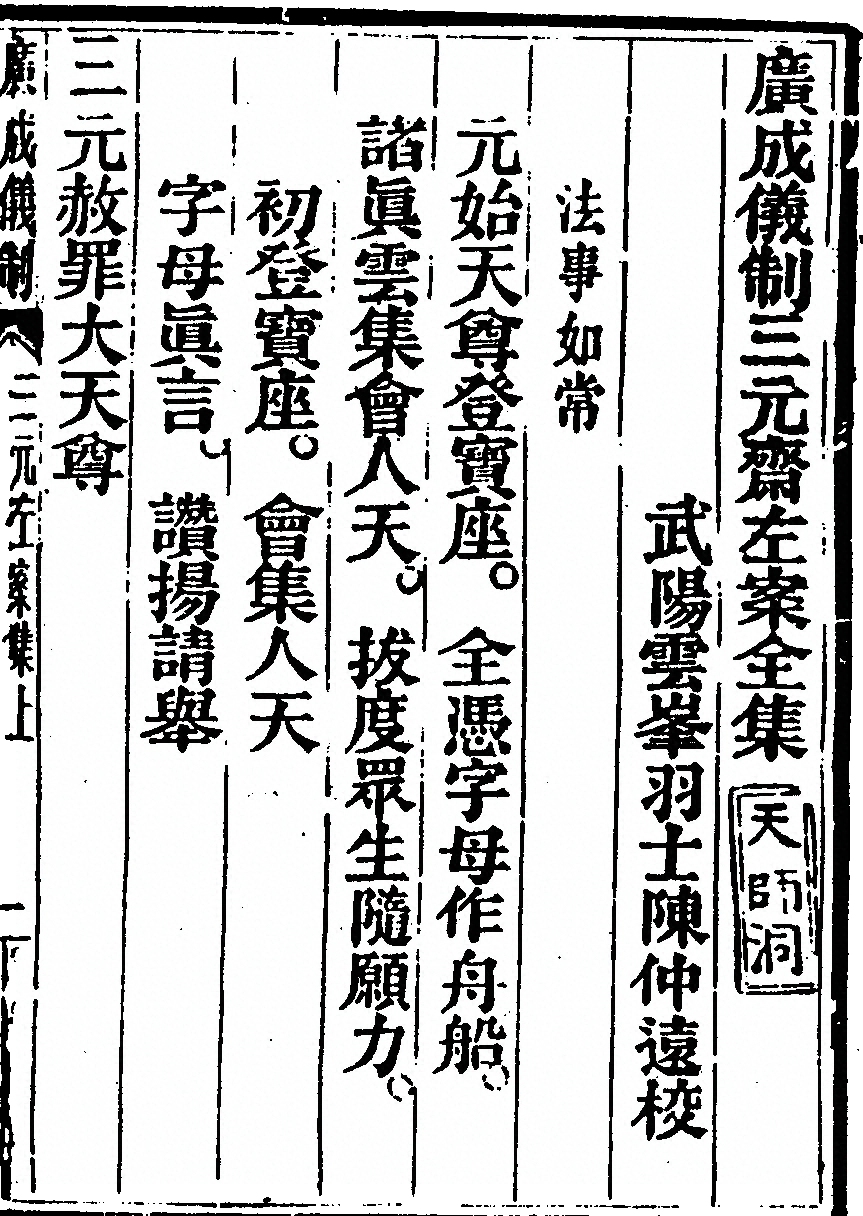 廣成儀制三元齋左案全集
天師洞
武陽雲峯羽士陳仲遠校
法事如常
元始天尊登寶座。全憑字母作舟船。
諸眞雲集會人天。拔度眾生隨願力。
初登寶座。會集人天
字母眞言。讚揚請舉
三元赦罪大天尊
廣成儀制
三元左案集上
一